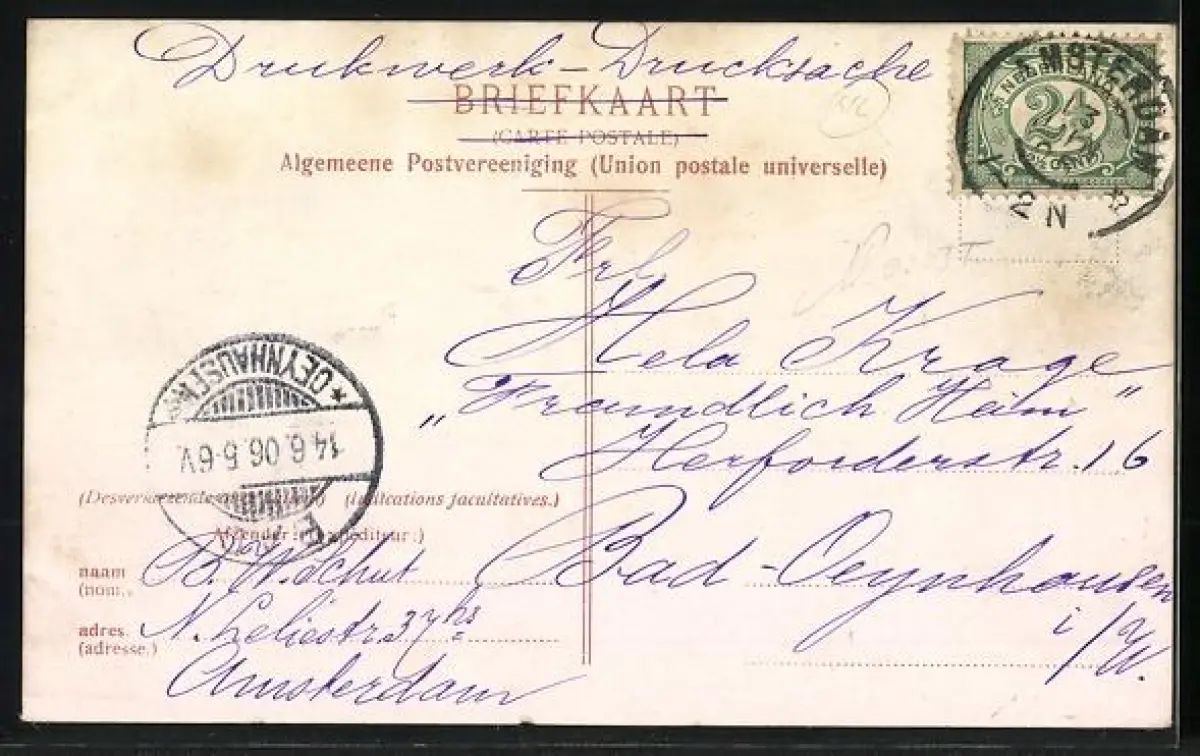 Drukwerk - Drucksache
BRIEFKAART
(CARTE POSTALE)
Algemeene Postvereeniging (Union postale universelle)
NEDERLAND
2½
AMSTERDAM
2 N
Frl.
Hela Krage
„Freundlich Heim"
Herforderstr. 16
Bad-Oeynhausen
i/W.
* OEYNHAUSEN
14.6.06.5-6V.
(Indications facultatives.)
Afzender: (Expéditeur:)
naam B. W. Schut
(nom.)
adres. N. Leliestr. 37 hs
(adresse.)
Amsterdam